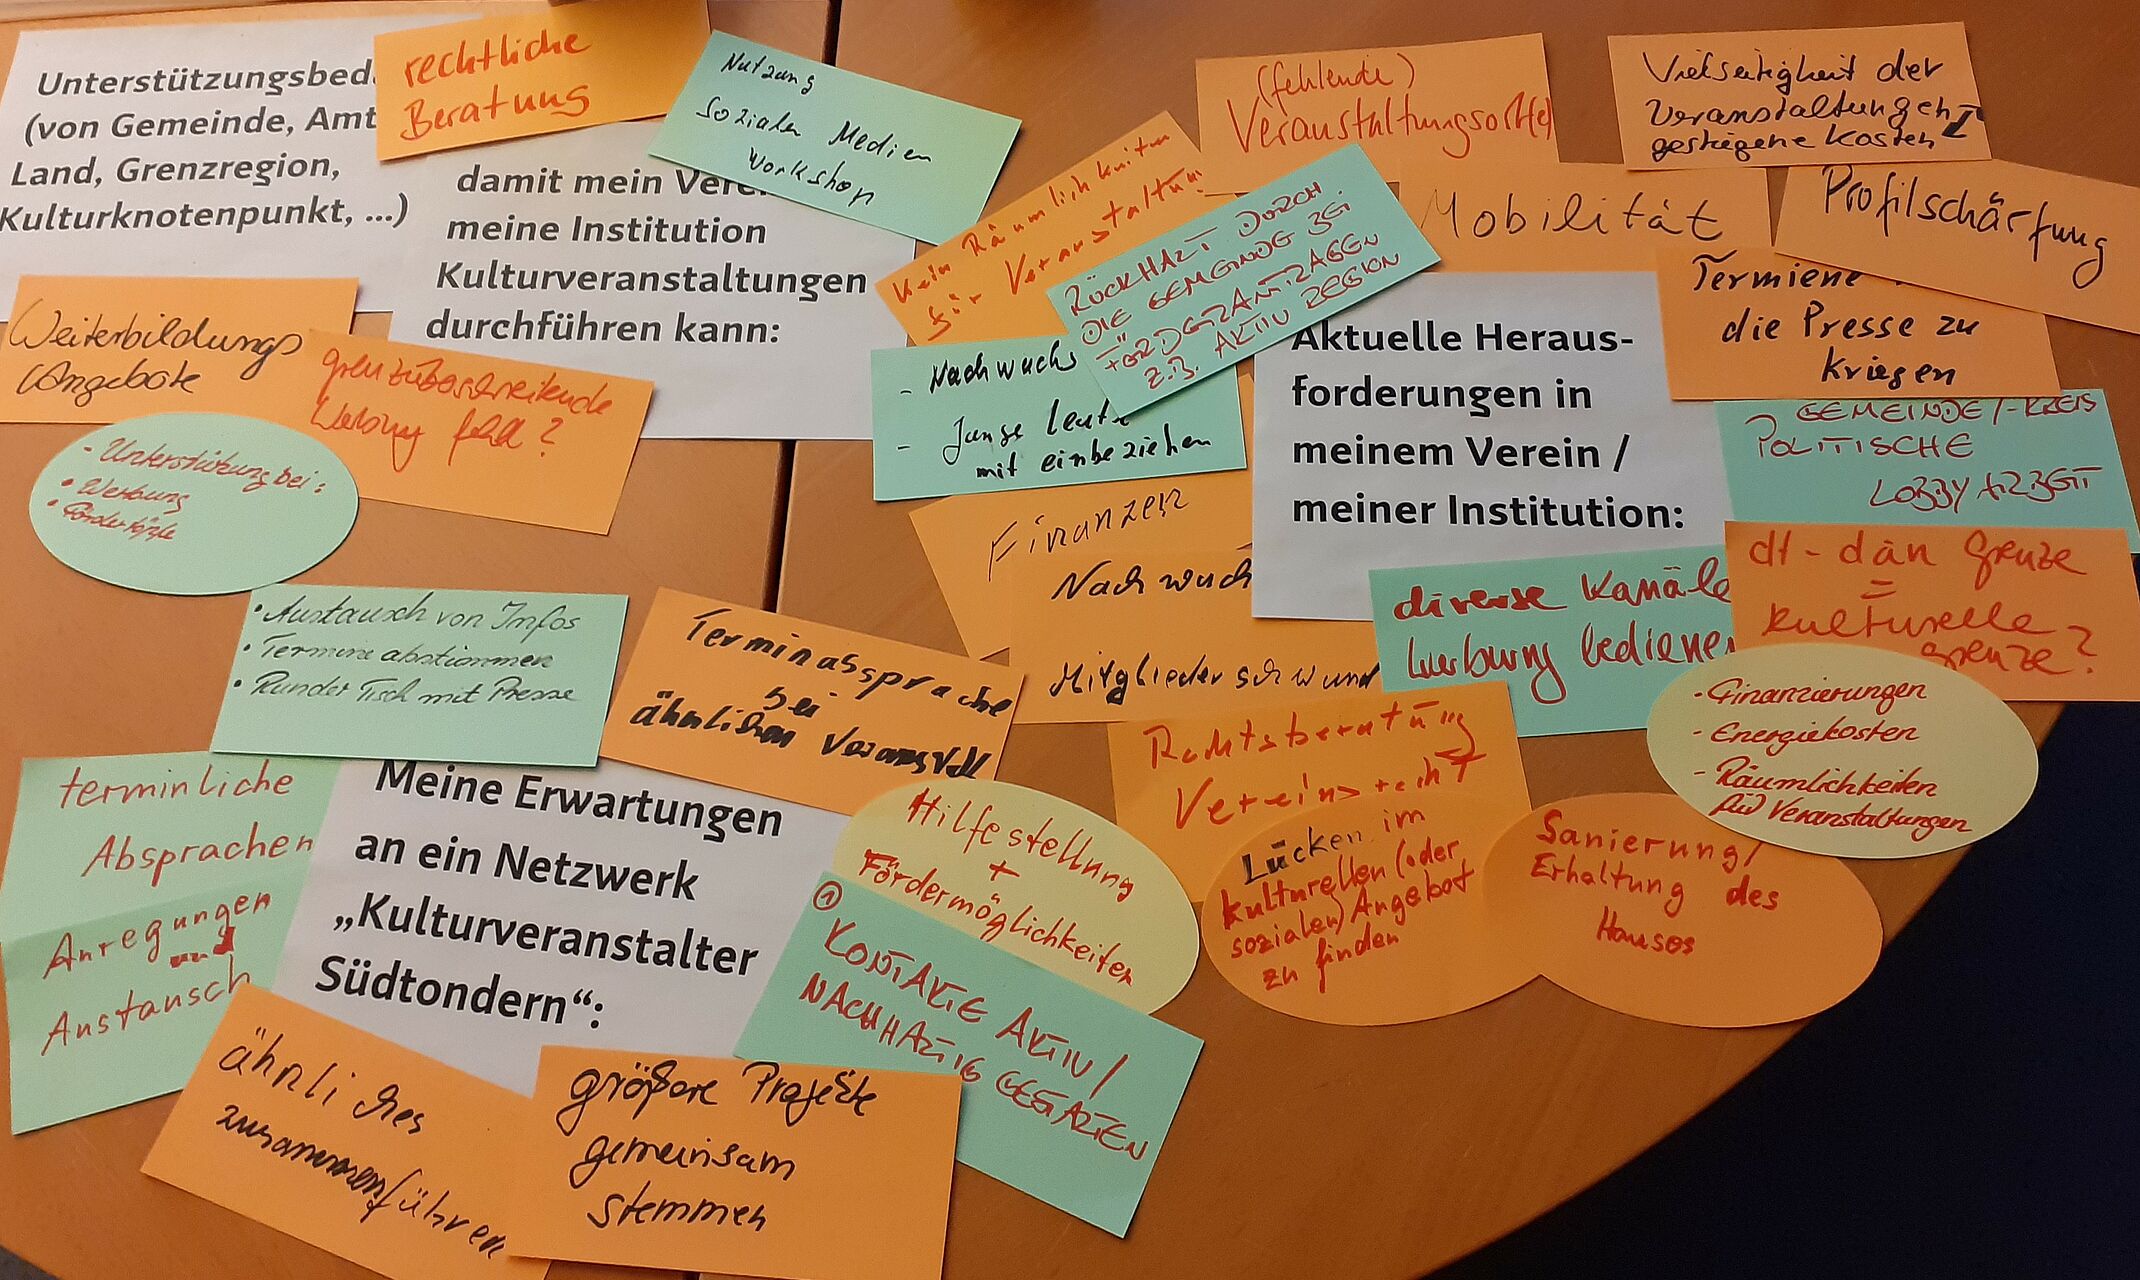 Unterstützungsbed
(von Gemeinde, Amt
Land, Grenzregion,
Kulturknotenpunkt, ...)
rechtliche
Beratung
damit mein Vere
meine Institution
Kulturveranstaltungen
durchführen kann:
Nutzung
sozialen Medien
Workshop
Weiterbildungs
Angebote
grenzüberschreitende
Werbung fehlt?
- Unterstützung bei:
• Werbung
• Fördertöpfe
Kein Räumlichkeiten
für Veranstaltung
RÜCKHALT DURCH
DIE GEMEINDE BEI
FÖRDERANTRÄGEN
z.B. AKTIV REGION
- Nachwuchs
- Junge Leute
mit einbeziehen
(fehlende)
Veranstaltungsort(e)
Vielseitigkeit der
Veranstaltungen
gestiegene Kosten
Mobilität
Profilschärfung
Termiene
die Presse zu
kriegen
Aktuelle Heraus-
forderungen in
meinem Verein /
meiner Institution:
GEMEINDE/-KREIS
POLITISCHE
LOBBYARBEIT
Finanzen
Nachwuch
Mitgliederschwund
diverse Kanäle
Werbung bedienen
dt - dän Grenze
=
kulturelle
grenze?
- Finanzierungen
- Energiekosten
- Räumlichkeiten
für Veranstaltungen
Rechtsberatung
Vereinsrecht
Lücken im
kulturellen (oder
sozialen) Angebot
zu finden
Sanierung/
Erhaltung des
Hauses
• Austausch von Infos
• Termine abstimmen
• Runder Tisch mit Presse
Terminabsprache
bei
ähnlichen
terminliche
Absprachen
Anregungen
und
Austausch
Meine Erwartungen
an ein Netzwerk
„Kulturveranstalter
Südtondern“:
Hilfestellung
+
Fördermöglichkeiten
1
KONTAKTE AKTIV/
NACHHALTIG GESTALTEN
ähnliches
zusammenführen
größere Projekte
gemeinsam
stemmen